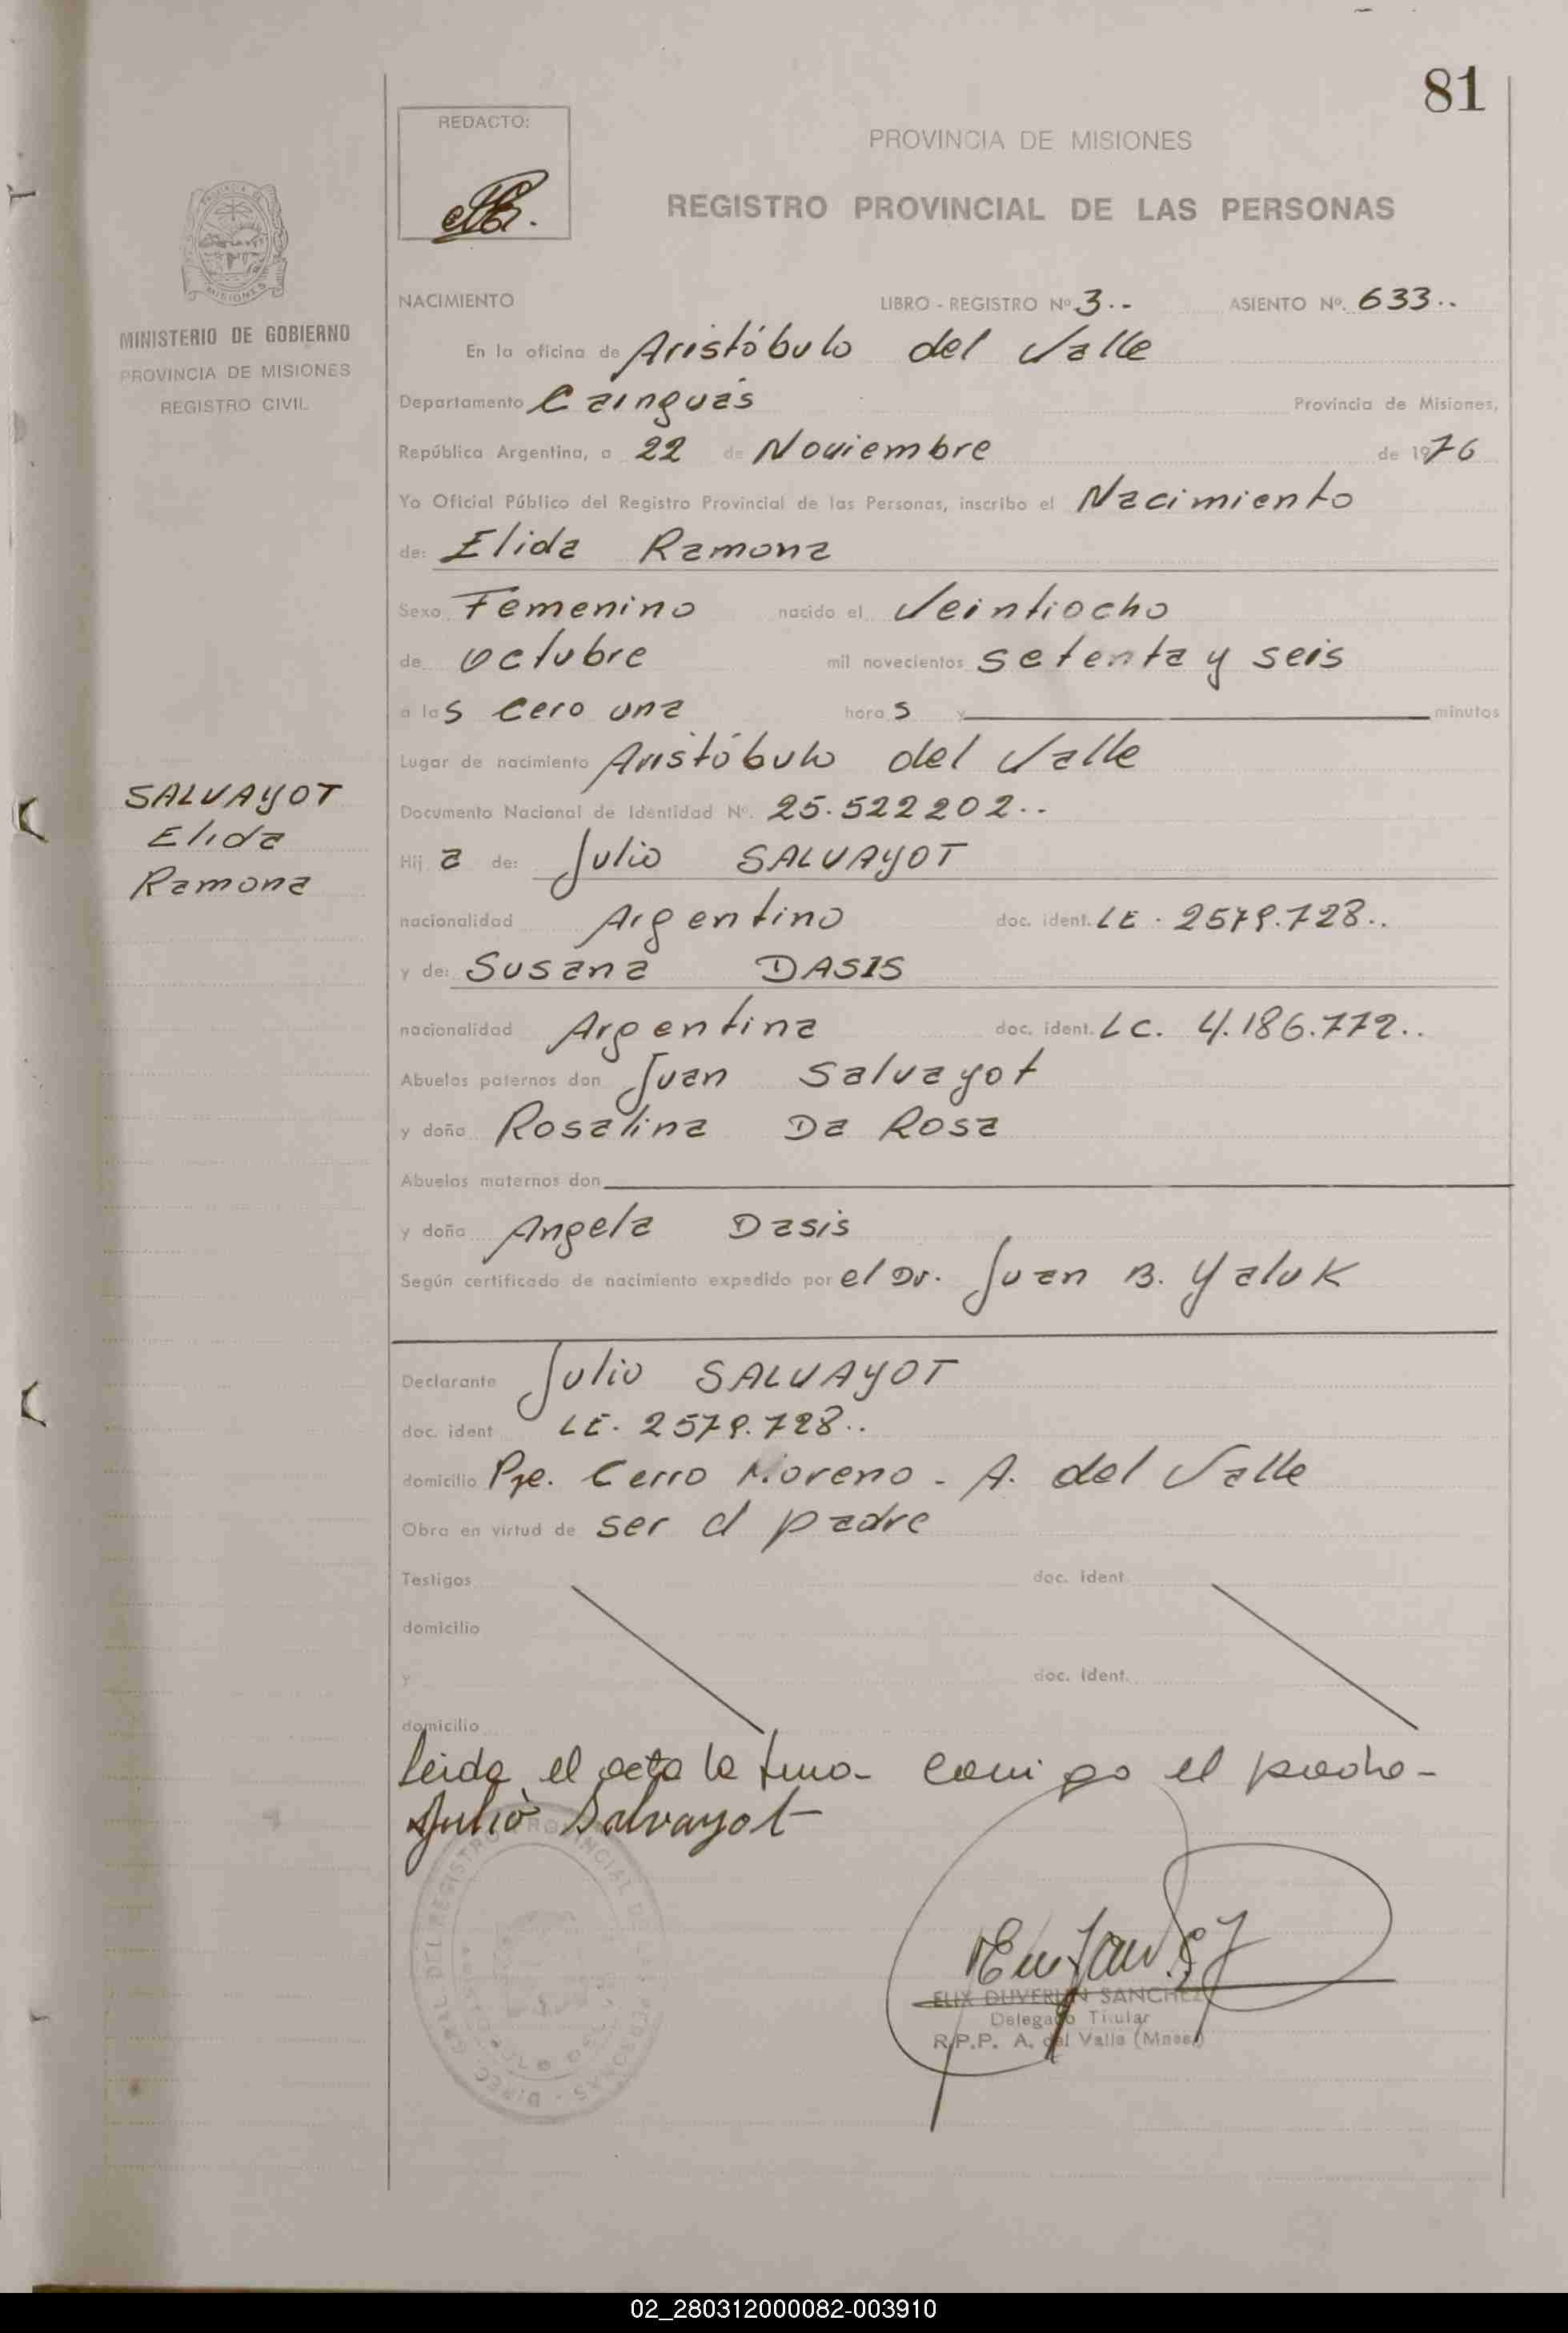 81
REDACTO:
PROVINCIA DE MISIONES
REGISTRO PROVINCIAL DE LAS PERSONAS
MISIONES
MINISTERIO DE GOBIERNO
PROVINCIA DE MISIONES
REGISTRO CIVIL
NACIMIENTO LIBRO - REGISTRO Nº 3.- ASIENTO Nº. 633..
En la oficina de Aristóbulo del Valle
Departamento Cainguás Provincia de Misiones,
República Argentina, a 22 de Noviembre de 1976
Yo Oficial Público del Registro Provincial de las Personas, inscribo el Nacimiento
de: Elida Ramona
Sexo Femenino nacido el Veintiocho
de octubre mil novecientos setenta y seis
a las cero una horas y minutos
Lugar de nacimiento Aristóbulo del Valle
SALVAYOT
Elida
Ramona
Documento Nacional de Identidad Nº. 25.522202..
Hija de: Julio SALVAYOT
nacionalidad Argentino doc. ident. LE. 2579.728..
y de: Susana DASIS
nacionalidad Argentina doc. ident. LC. 4.186.772..
Abuelos paternos don Juan Salvayot
y doña Rosalina Da Rosa
Abuelos maternos don
y doña Angela Dasis
Según certificado de nacimiento expedido por el Dr. Juan B. Yaluk
Declarante Julio SALVAYOT
doc. ident LE. 2579.728..
domicilio Pje. Cerro Moreno - A. del Valle
Obra en virtud de ser el padre
Testigos doc. ident.
domicilio
y doc. ident.
domicilio
Leida el acta la firma conmigo el padre-
Julio Salvayot
ELIX DUVERLIN SANCHEZ
Delegado Titular
R.P.P. A. del Valle (Mnes.)
02_280312000082-003910